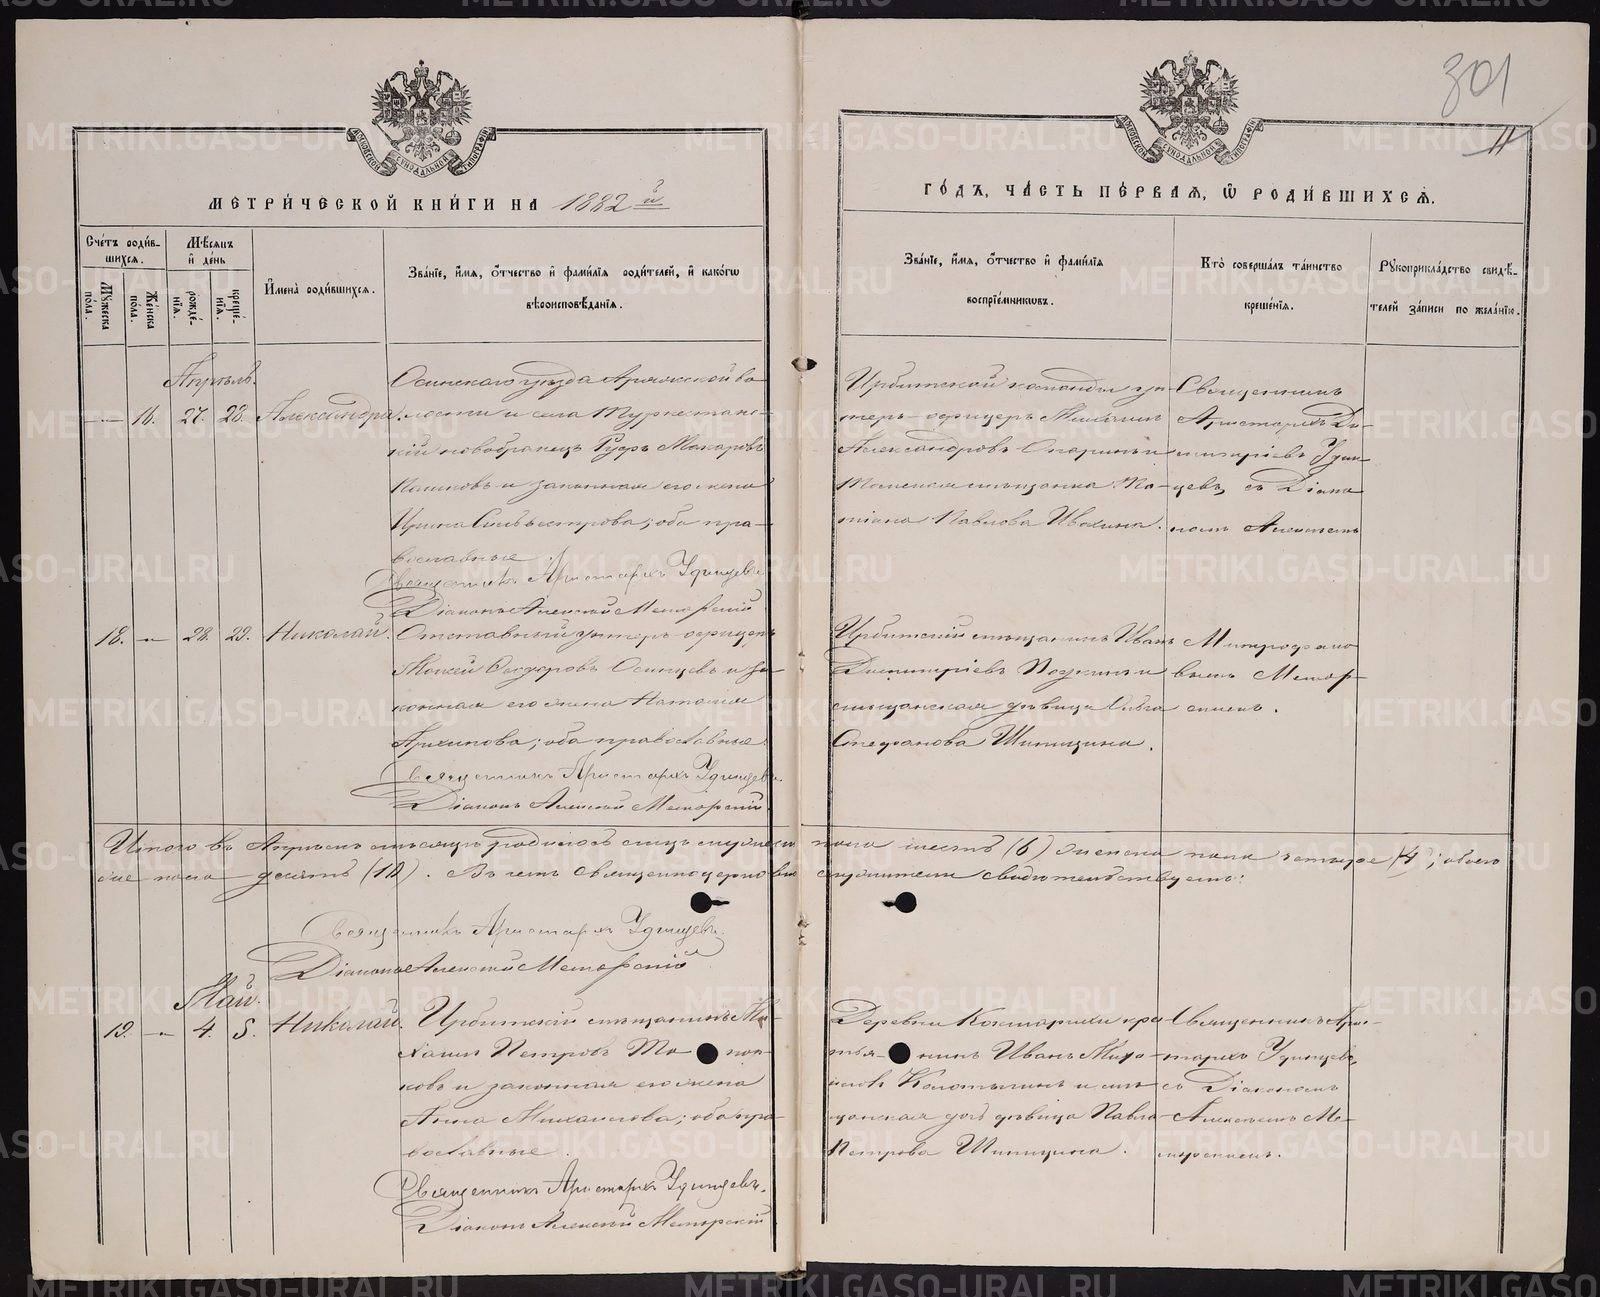 301
11
МЕТРИ́ЧЕСКОЙ КНИ́ГИ НА 1882 й
ГО́ДЪ, ЧА́СТЬ ПЕ́РВАѦ, Ѡ РОДИ́ВШИХСѦ.
Сче́тъ роди́в-
шихсѧ.
Мѣ́сѧцъ
и де́нь
Мꙋ́жеска по́ла.
Же́нска по́ла.
рожде́нїѧ.
креще́нїѧ.
И́мена̀ роди́вшихсѧ.
Зва́нїе, и́мѧ, о́тчество и фами́лїѧ роди́телей, и како́гѡ
вѣроисповѣ́данїѧ.
Зва́нїе, и́мѧ, о́тчество и фами́лїѧ
воспрїе́мникѡвъ.
Кто̀ соверша́лъ та́инство
креще́нїѧ.
Рꙋкоприкла́дство свидѣ́-
телей за́писи по жела́нїю.
Апрѣль.
— 16. 27. 28. Александра.
Осинскаго уѣзда Аряжской во-
лости и села Туркестанс-
кій новобранецъ Руфъ Макаровъ
и законная его жена
Ирина Сильвестрова; оба пра-
вославные.
Священникъ Аристархъ Удинцевъ
Діаконъ Алексій Меморскій
Ирбитской команды ун-
теръ-офицеръ
Александровъ и
мѣщанка Та-
тіана Павлова Ивахина.
Священникъ
Аристархъ Ди-
митріевъ Удин-
цевъ, съ Діако-
номъ Алексѣемъ
18. — 28. 29. Николай.
Отставный унтеръ-офицеръ
Мокей Ѳедоровъ Осинцевъ и за-
конная его жена Наталія
Архипова; оба православные.
Священникъ Аристархъ Удинцевъ.
Діаконъ Алексій Меморскій.
Ирбитскій мѣщанинъ Иванъ
Димитріевъ и
мѣщанская дѣвица Ольга
Стефанова Шипицина.
Митрофано-
вымъ Мемор-
скимъ.
Итого въ Апрѣлѣ мѣсяцѣ родилось мужеска пола шесть (6) женска пола четыре (4); обоего
пола десять (10). Въ чемъ священноцерковнослужители свидѣтельствуемъ:
Священникъ Аристархъ Удинцевъ.
Діаконъ Алексій Меморскій
Май.
19. — 4. 5. Николай.
Ирбитскій мѣщанинъ Ми-
хаилъ Петровъ
и законная его жена
Анна Михаилова; оба пра-
вославные.
Священникъ Аристархъ Удинцевъ.
Діаконъ Алексій Меморскій
Деревни кре-
стья- нинъ Иванъ Миха-
иловъ и мѣ-
щанская дочь дѣвица Павла
Петрова Шипицина.
Священникъ Арис-
тархъ Удинцевъ,
съ Діакономъ
Алексѣемъ Ме-
морскимъ.
METRIKI.GASO-URAL.RU